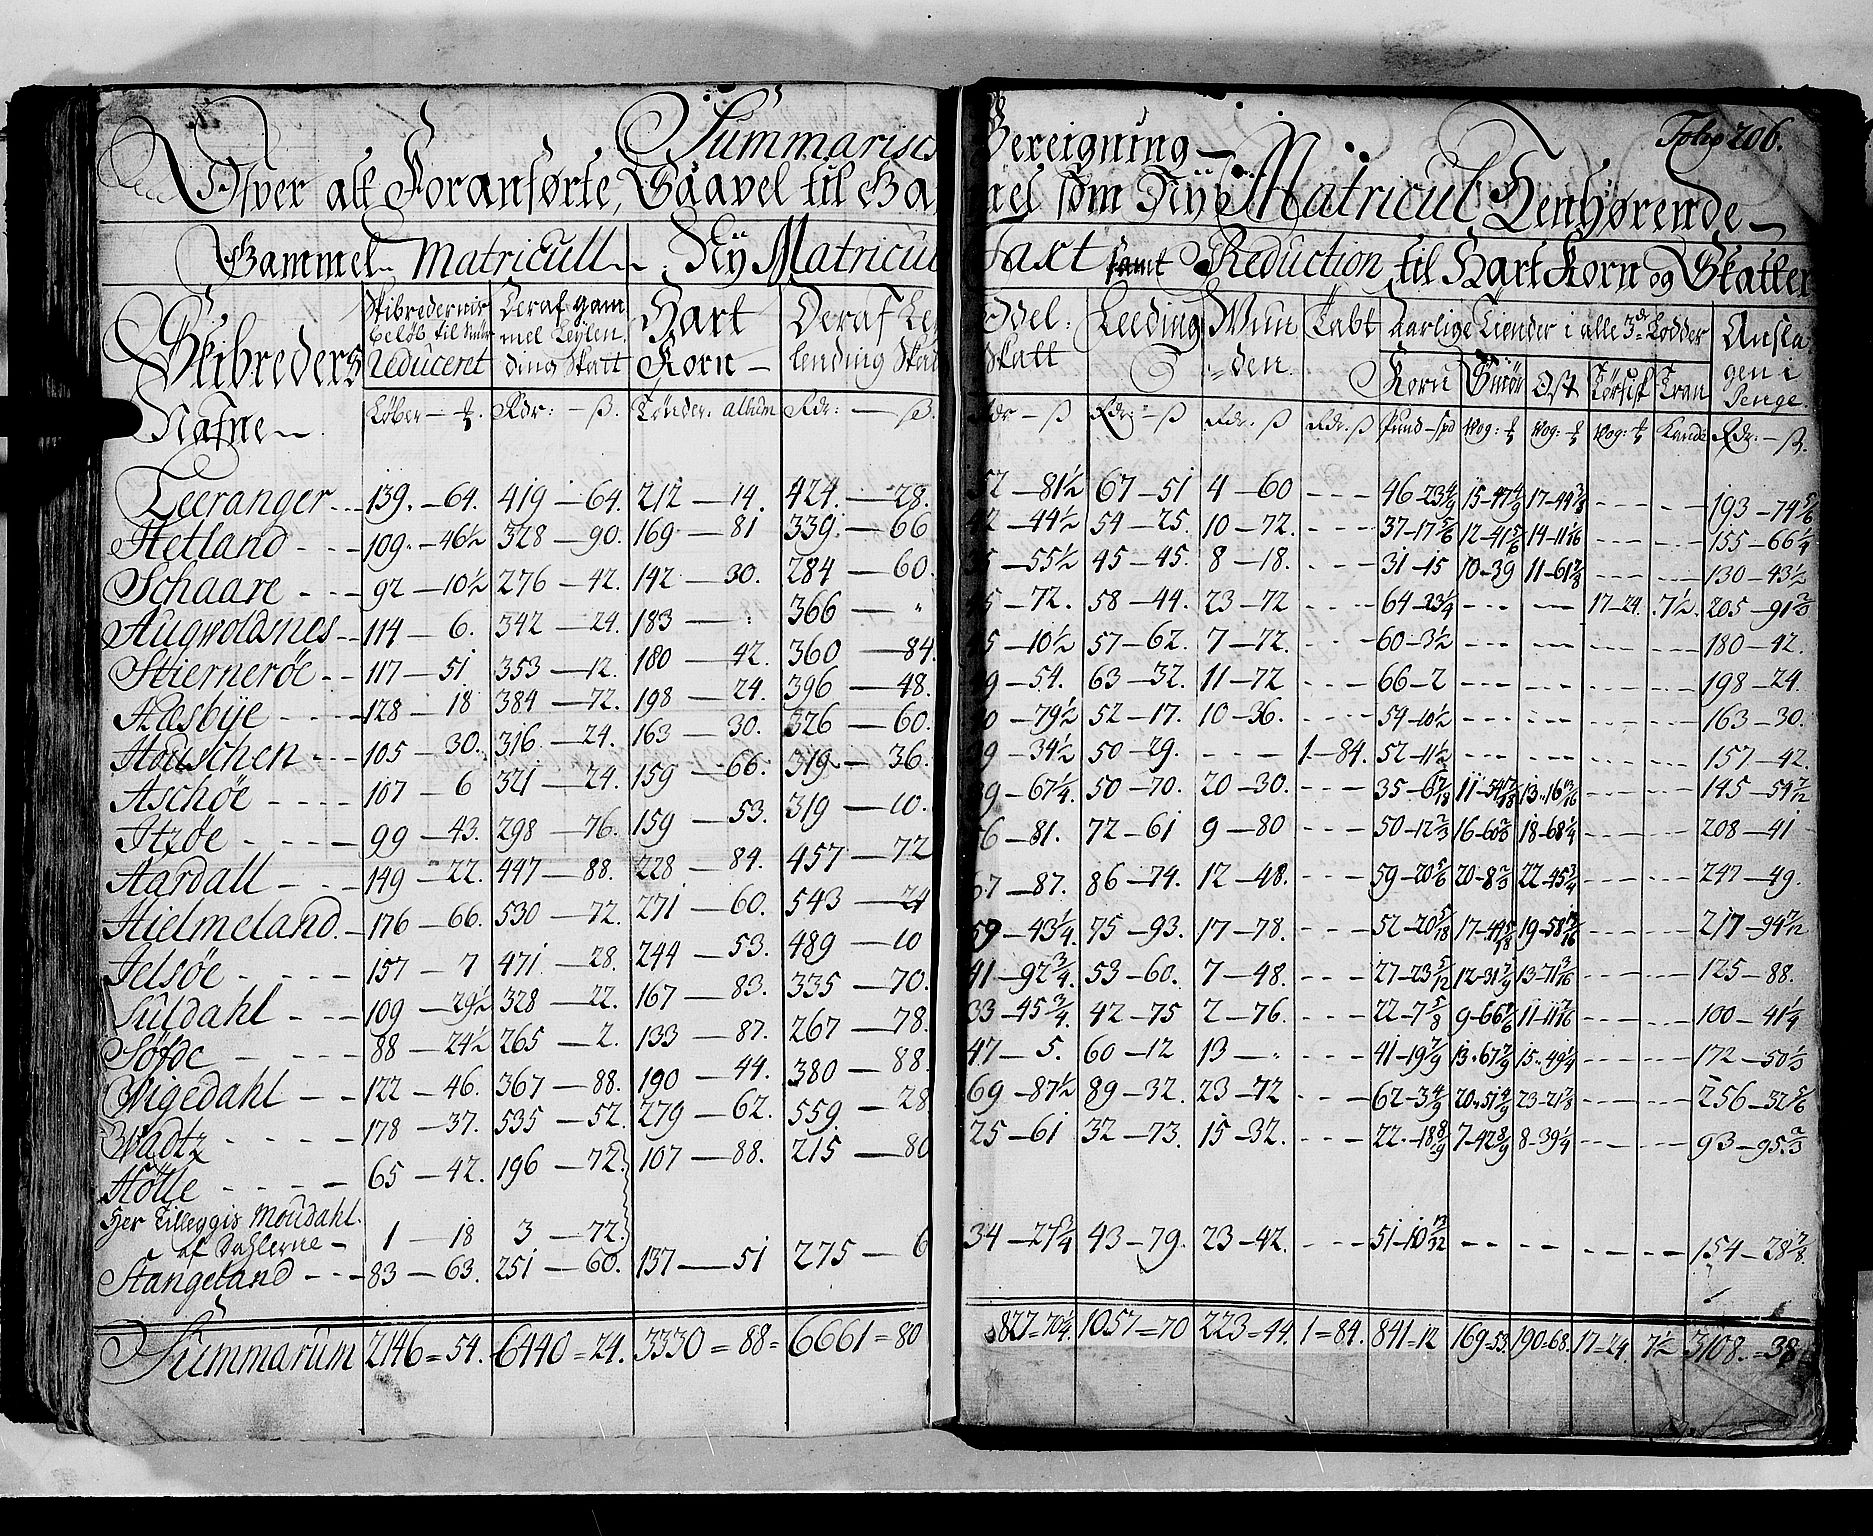 Summarisch Bereigning
Folio 206.
Ofver alt Foranførte, Saavel til Gammel som Nÿ Matricul Henhørende
Gammel Matricull Nÿ Matricul Taxt samt Reduction til Hart Korn og Skatter
Skibreders Nafne Skibredernis beløb til Smør reduceret Deraf gammel Leylendings Skatt Hart Korn Deraf Leylending Skatt Odel Skatt Leeding Wunden Tabt Aarlige Tiender i alle 3de Lodder Ansla gen i Penge
Korn Smør Ost Tørfisk Tran
Løber Rdr: ß. Tønder. album Rdr: ß Rdr ß Rdr: ß Rdr. ß Rdr. ß Pund Spd Wog: Wog: Wog: Kande Rdr. ß.
Leeranger 139. 64. 419 64. 212 14. 424. 28. 52 81½ 67 51 4 60 46 23 4/9 15 47 4/9 17 44 3/8 193 74 5/6
Hetland 109. 46½ 328 90. 169 81 339. 66 42 44½ 54 25. 10 72. 37 17 5/6 12 41 5/6 14 11 1/16 155 66¼
Schaare 92 10½ 276 42. 142 30. 284 60. 35 55½ 45 45. 8 18. 31 15 10 39 11 61 7/8 130 43½
Augwoldsnes 114 6. 342 24. 183 366 45 72. 58 44. 23 72 64 23¼ 17 24. 7½. 205 91 2/3
Stiernerøe 117 51. 353 12. 180 42. 360 84. 45 10½ 57 62. 7 72. 60 3½ 180 42.
Hæsbÿe 128 18 384 72. 198 24. 396 48. 49 54. 63 32. 11 72 66 2 198 24.
Houschen 105 30. 316 24. 163 30. 326 60. 40 79½ 52 17. 10 36. 54 10½ 163 30.
Aschøe 107 6 321 24. 159 66. 319 36. 39 34½ 50 29. 1 84. 52 11½ 157 42.
Itzøe 99 43. 298 76. 159 53. 319 10. 39 67¼. 50 70. 20 30. 35 13 16 145 54 7/12
Aardall 149 22. 447 88. 228 84. 457 72 56 81. 72 61 9 80 50 12 2/3 16 60 2/3 18 68¼ 208 41
Hielmeland 176 66. 530 72. 271 60. 543 24 67 87. 86 74. 12 48. 59 20 5/6 20 8 2/3 22 45¾ 247 49.
Jelsøe 157 7 471 28. 244 53. 489 10 59 43¼ 75 93. 17 78. 52 20 5/18 17 19 58 217 94 7/12
Suldahl 109 29½ 328 22. 167 83. 335 70. 41 92¾ 53 60. 7 48. 27 23 5/12 12 31 7/9 13 71 3/16 125 88.
Søfde 88 24½ 265 2. 133 87. 267 78. 33 45¾. 42 75 2 76. 22 7 5/8 9 66 11 11 100 41¼
Wigedahl 122 46. 367 88. 190 44. 380 88. 47 5. 60 12 13 41 19 7/9 13 67 7/9 15 49¼ 172 50 1/3
Wadtz 178 37. 535 52. 279 62. 559 28 69 87½ 89 32. 23 72 62 3 4/9 20 51 4/9 23 21 7/8 256 32 5/6
Hølle 65 42. 196 72. 107 88. 215 80 25 61 32 73. 15 32. 22. 18 8/9 7 42 8/9 8 39¼ 93 95 2/3
Her Tilleggis Moudahl.
af Dahlerne 1 18 3 72.
Stangeland 83 63. 251 60. 137 51 275 6 34 27¾ 43 79. 23 42. 51 10 13/32 154 28 7/8.
Summarum 2146 = 54. 6440 = 24. 3330 = 88 = 6661 = 80 827 = 70¼. 1057 = 70 223 = 44. 1 = 84. 841 = 12 169 = 53. 190 = 68. 17 = 24. 7½ 3108. = 38